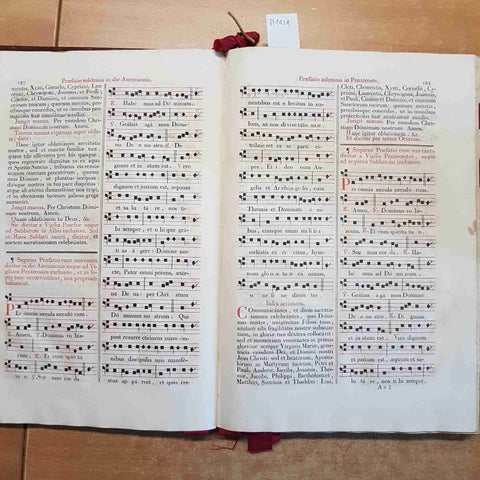 182
Præfatio solemnis in die Ascensionis.
mentis, Xysti, Cornelii, Cypriani, Lau-
rentii, Chrysogoni, Joannis, et Pauli,
Cosmæ, et Damiani, et omnium Sanc-
torum tuorum; quorum meritis, pre-
cibusque concedas, ut in omnibus pro-
tectionis tuæ muniamur auxilio.
Jungit manus. Per eumdem Chri-
stum Dominum nostrum. Amen.
Tenens manus expansas super obla-
ta dicit:
Hanc igitur oblationem servitutis
nostræ, sed et cunctæ familiæ tuæ,
quam tibi offerimus pro his quoque,
quos regenerare dignatus es ex aqua
et Spiritu Sancto, tribuens eis remis-
sionem omnium peccatorum, quæsu-
mus Domine, ut placatus accipias:
diesque nostros in tua pace disponas,
atque ab æterna damnatione nos eripi,
et in electorum tuorum jubeas grege
numerari.
Jungit manus. Per Christum Domi-
num nostrum. Amen.
Quam oblationem tu Deus, &c.
Sic dicitur a Vigilia Paschæ usque
ad Sabbatum in Albis inclusive. Sed
in Missa Sabbati sancti, dicitur, et
noctem sacratissimam celebrantes.
¶ Sequens Præfatio cum suo cantu
dicitur in die Ascensionis usque ad Vi-
giliam Pentecostes exclusive, et in fe-
stis tunc occurrentibus, nisi propriam
habuerint.
Per omnia sæcula sæculorum.
℟. Amen. ℣. Dominus vobis-
cum. ℟. Et cum spiritu
tuo. ℣. Sursum corda.
℟. Habemus ad Dominum.
℣. Gratias agamus Domi-
no Deo nostro. ℟. Di-
gnum et justum est. Vere
dignum et justum est, æquum
et salutare, nos ti-
bi semper, et ubique gra-
tias agere: Domine sanc-
te, Pater omnipotens, æter-
ne Deus: per Christum
Dominum nostrum. Qui
post resurrectionem suam om-
nibus discipulis suis manife-
stus apparuit, et ipsis cer-
Præfatio solemnis in Pentecoste.
183
nentibus est elevatus in cœ-
lum, ut nos divinitatis suæ
tribueret esse parti-
cipes. Et ideo cum An-
gelis et Archangelis, cum
Thronis et Dominationi-
bus, cumque omni mili-
tia cœlestis exercitus,
hymnum gloriæ tuæ canimus,
sine fine dicentes.
Infra actionem.
Communicantes, et diem sacratis-
simum celebrantes, quo Domi-
nus noster, unigenitus Filius tuus,
unitam sibi fragilitatis nostræ substan-
tiam, in gloriæ tuæ dextera collocavit:
sed et memoriam venerantes in primis
gloriosæ semper Virginis Mariæ, geni-
tricis ejusdem Dei, et Domini nostri
Jesu Christi: sed et beatorum Aposto-
lorum ac Martyrum tuorum, Petri et
Pauli, Andreæ, Jacobi, Joannis, Tho-
mæ, Jacobi, Philippi, Bartholomæi,
Matthæi, Simonis et Thaddæi: Lini,
Cleti, Clementis, Xysti, Cornelii, Cy-
priani, Laurentii, Chrysogoni, Joannis,
et Pauli, Cosmæ et Damiani, et omnium
Jungit manus. Per eumdem Chri-
stum Dominum nostrum. Amen.
Hanc igitur oblationem, &c.
Et dicitur per totam Octavam.
¶ Sequens Præfatio cum suo cantu
dicitur a Vigilia Pentecostes, usque
ad sequens Sabbatum inclusive.
Per omnia sæcula sæculorum.
℟. Amen. ℣. Dominus vobis-
cum. ℟. Et cum spiritu tuo.
℣. Sursum corda. ℟. Habe-
mus ad Dominum.
℣. Gratias agamus Domi-
no Deo nostro. ℟. Dignum
et justum est. Vere di-
gnum et justum est, æquum et sa-
lutare, nos tibi semper,
A a 3